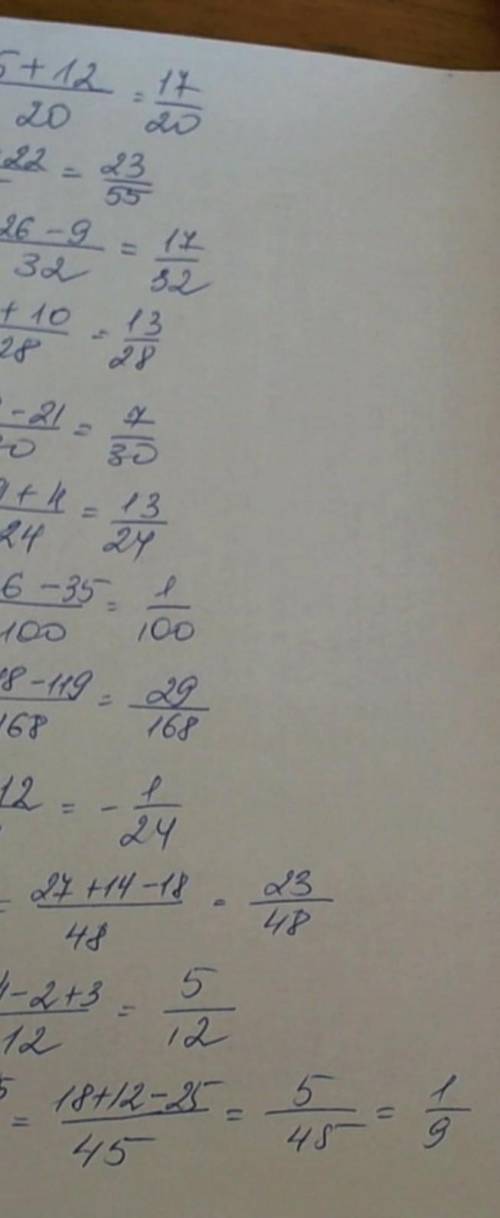 5 + 12 / 20 = 17/20
22 = 23/55
26 - 9 / 32 = 17/32
+ 10 / 28 = 13/28
- 21 / 30 = 7/30
9 + 4 / 24 = 13/24
6 - 35 / 100 = 1/100
18 - 119 / 168 = 29/168
12 = - 1/24
= 27 + 14 - 18 / 48 = 23/48
4 - 2 + 3 / 12 = 5/12
5 = 18 + 12 - 25 / 45 = 5/45 = 1/9